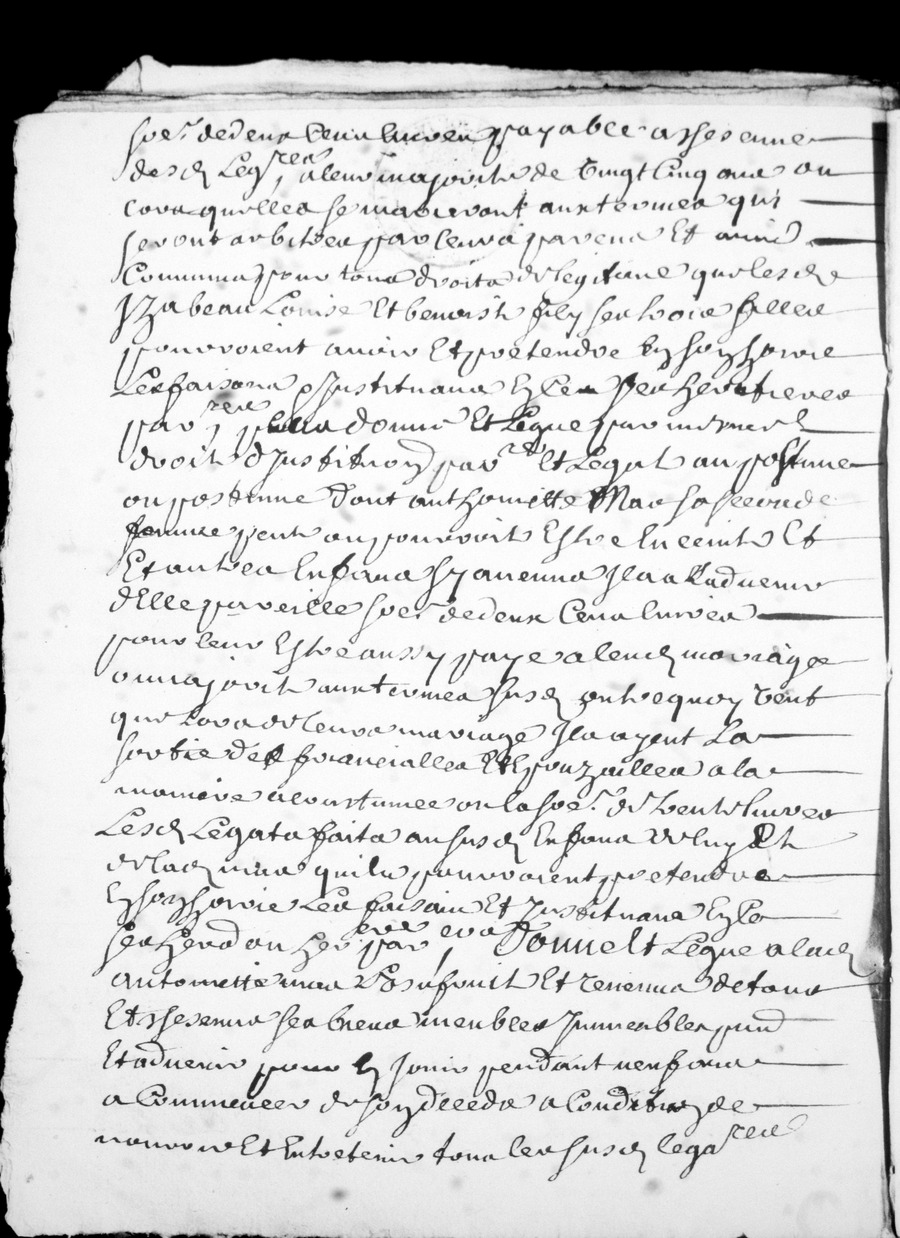 so.e de deux cens livres payable a chescune
desd. Leg.res a leur majorité de vingt cinq ans ou
lors quelles se marieront aux termes qui
seront arbitrés par leurs parens Et amis
Communs pour tous droits de legitime que lesd.
Yzabeau Louise Et benoiste ses trois filles
pourroient avoir Et pretendre En son hoirie
Les faisans & Instituans En ses heritieres
par.res donne Et Legue par mesme
droit d'Institution par.re Et Legat au postume
ou postume dont anthoinette Mas sa seconde
femme peut ou pourroit Estre Enceinte Et
Et autres Enfans sy aucuns Il a a L'advenir
d'Elle pareille so.e de deux Cens livres
pour leur Estre aussy payé a leurd. mariage
ou majorité aux termes susd. outre quoy veut
que Lors de leurs mariage Ils ayent La
sortie des fiancialles Et Epouzailles a la
maniere acoustumée ou la so.e de trente livres
Lesd. Legats faits au susd. Enfans de luy Et
de lad. mas quils pourroient pretendre
En son hoirie Les faisant Et Instituans En
ses her. ou her.eres par.eres Donne Et Legue a lad.
antoinette mas L'usufruit Et revenus de tous
Et chescuns ses biens meubles Immeubles pnts
Et advenir pour En Jouir pendant neuf ans
a Commencer de son deceds a Condition de
nourrir Et Entretenir tous les susd. lega.res